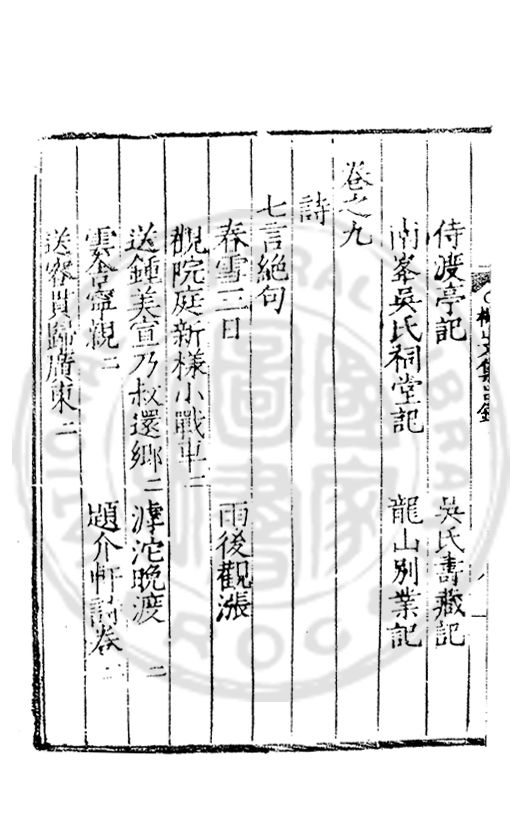 山文集目錄
侍渡亭記 吳氏壽藏記
南峯吳氏祠堂記 龍山別業記
卷之九
詩
七言絕句
春雪三日 雨後觀漲
觀院庭新樣小戰車二
送鍾美宣乃叔還鄉二 滹沱晚渡二
雲谷寧親二 題介軒詩卷二
送容貫歸廣東二